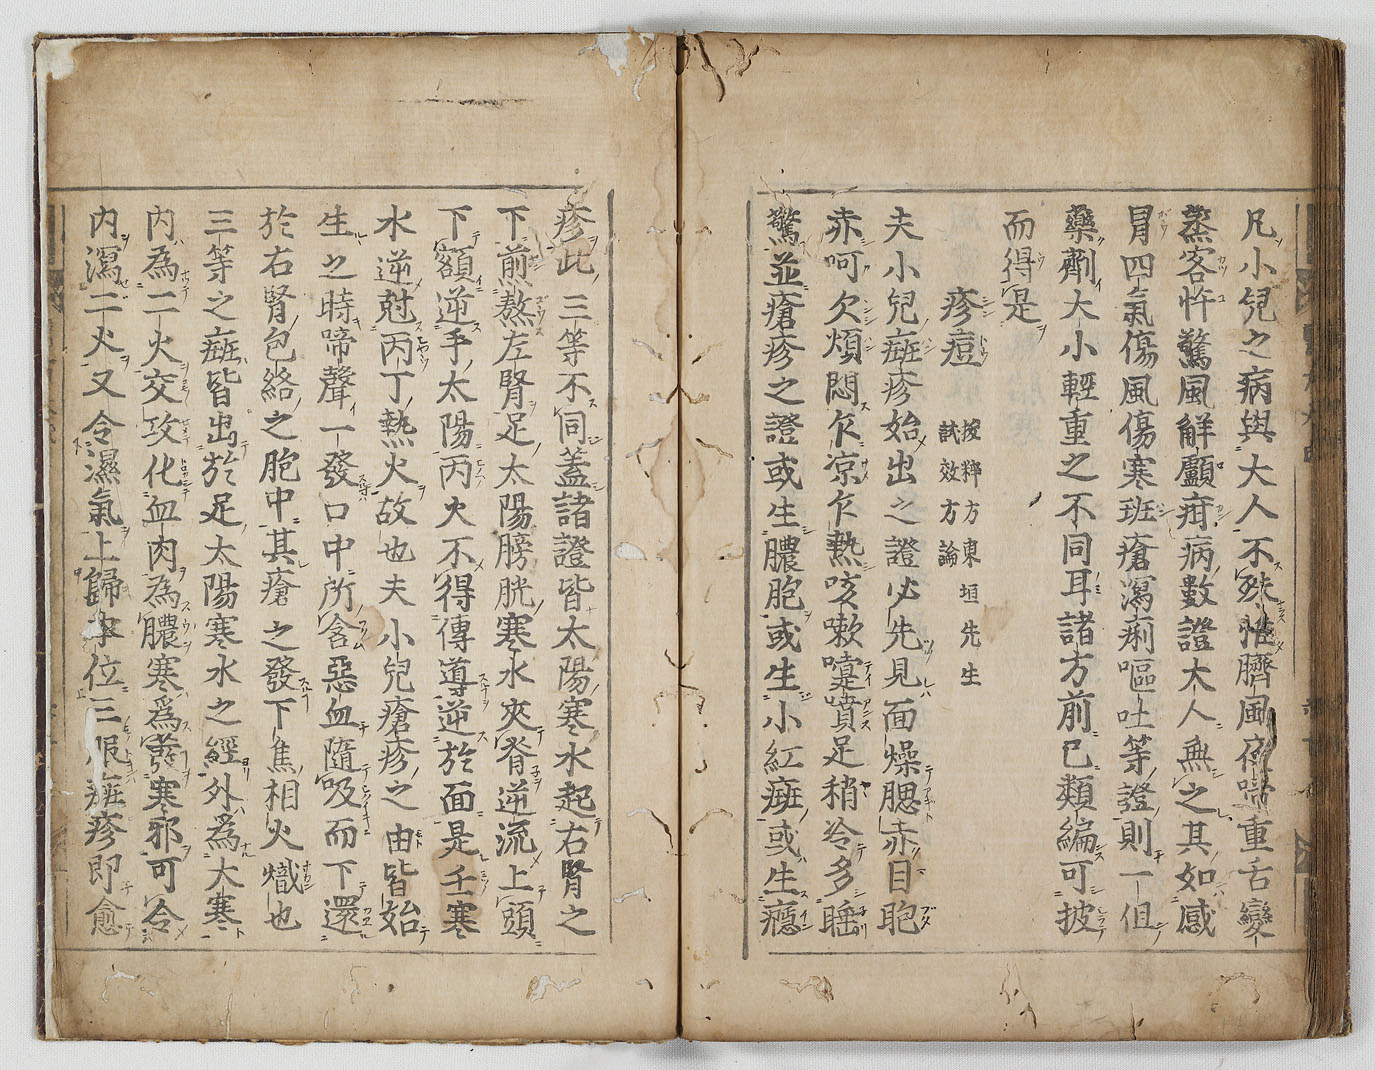 凡小兒之病與大人不殊惟臍風夜啼重舌變
蒸客忤驚風解顱疳病數證大人無之其如感
冒四氣傷風傷寒班瘡瀉痢嘔吐等證則一但
藥劑大小輕重之不同耳諸方前已類編可披
而得是
疹痘
按粹方東垣先生
試效方論
夫小兒癍疹始出之證必先見面燥腮赤目胞
赤呵欠煩悶乍凉乍熱咳嗽嚏噴足稍冷多睡
驚並瘡疹之證或生膿胞或生小紅癍或生癮
疹此三等不同蓋諸證皆太陽寒水起右腎之
下前熬左腎足太陽膀胱寒水夾脊逆流上頭
下額逆手太陽丙火不得傳導逆於面是壬寒
水逆尅丙丁熱火故也夫小兒瘡疹之由皆始
生之時啼聲一發口中所含惡血隨吸而下還
於右腎包絡之胞中其瘡之發下焦相火熾也
三等之癍皆出於足太陽寒水之經外為大寒
內為二火交攻化血肉為膿寒爲寒邪可令
內瀉二火又令濕氣上歸位三服癍疹即愈